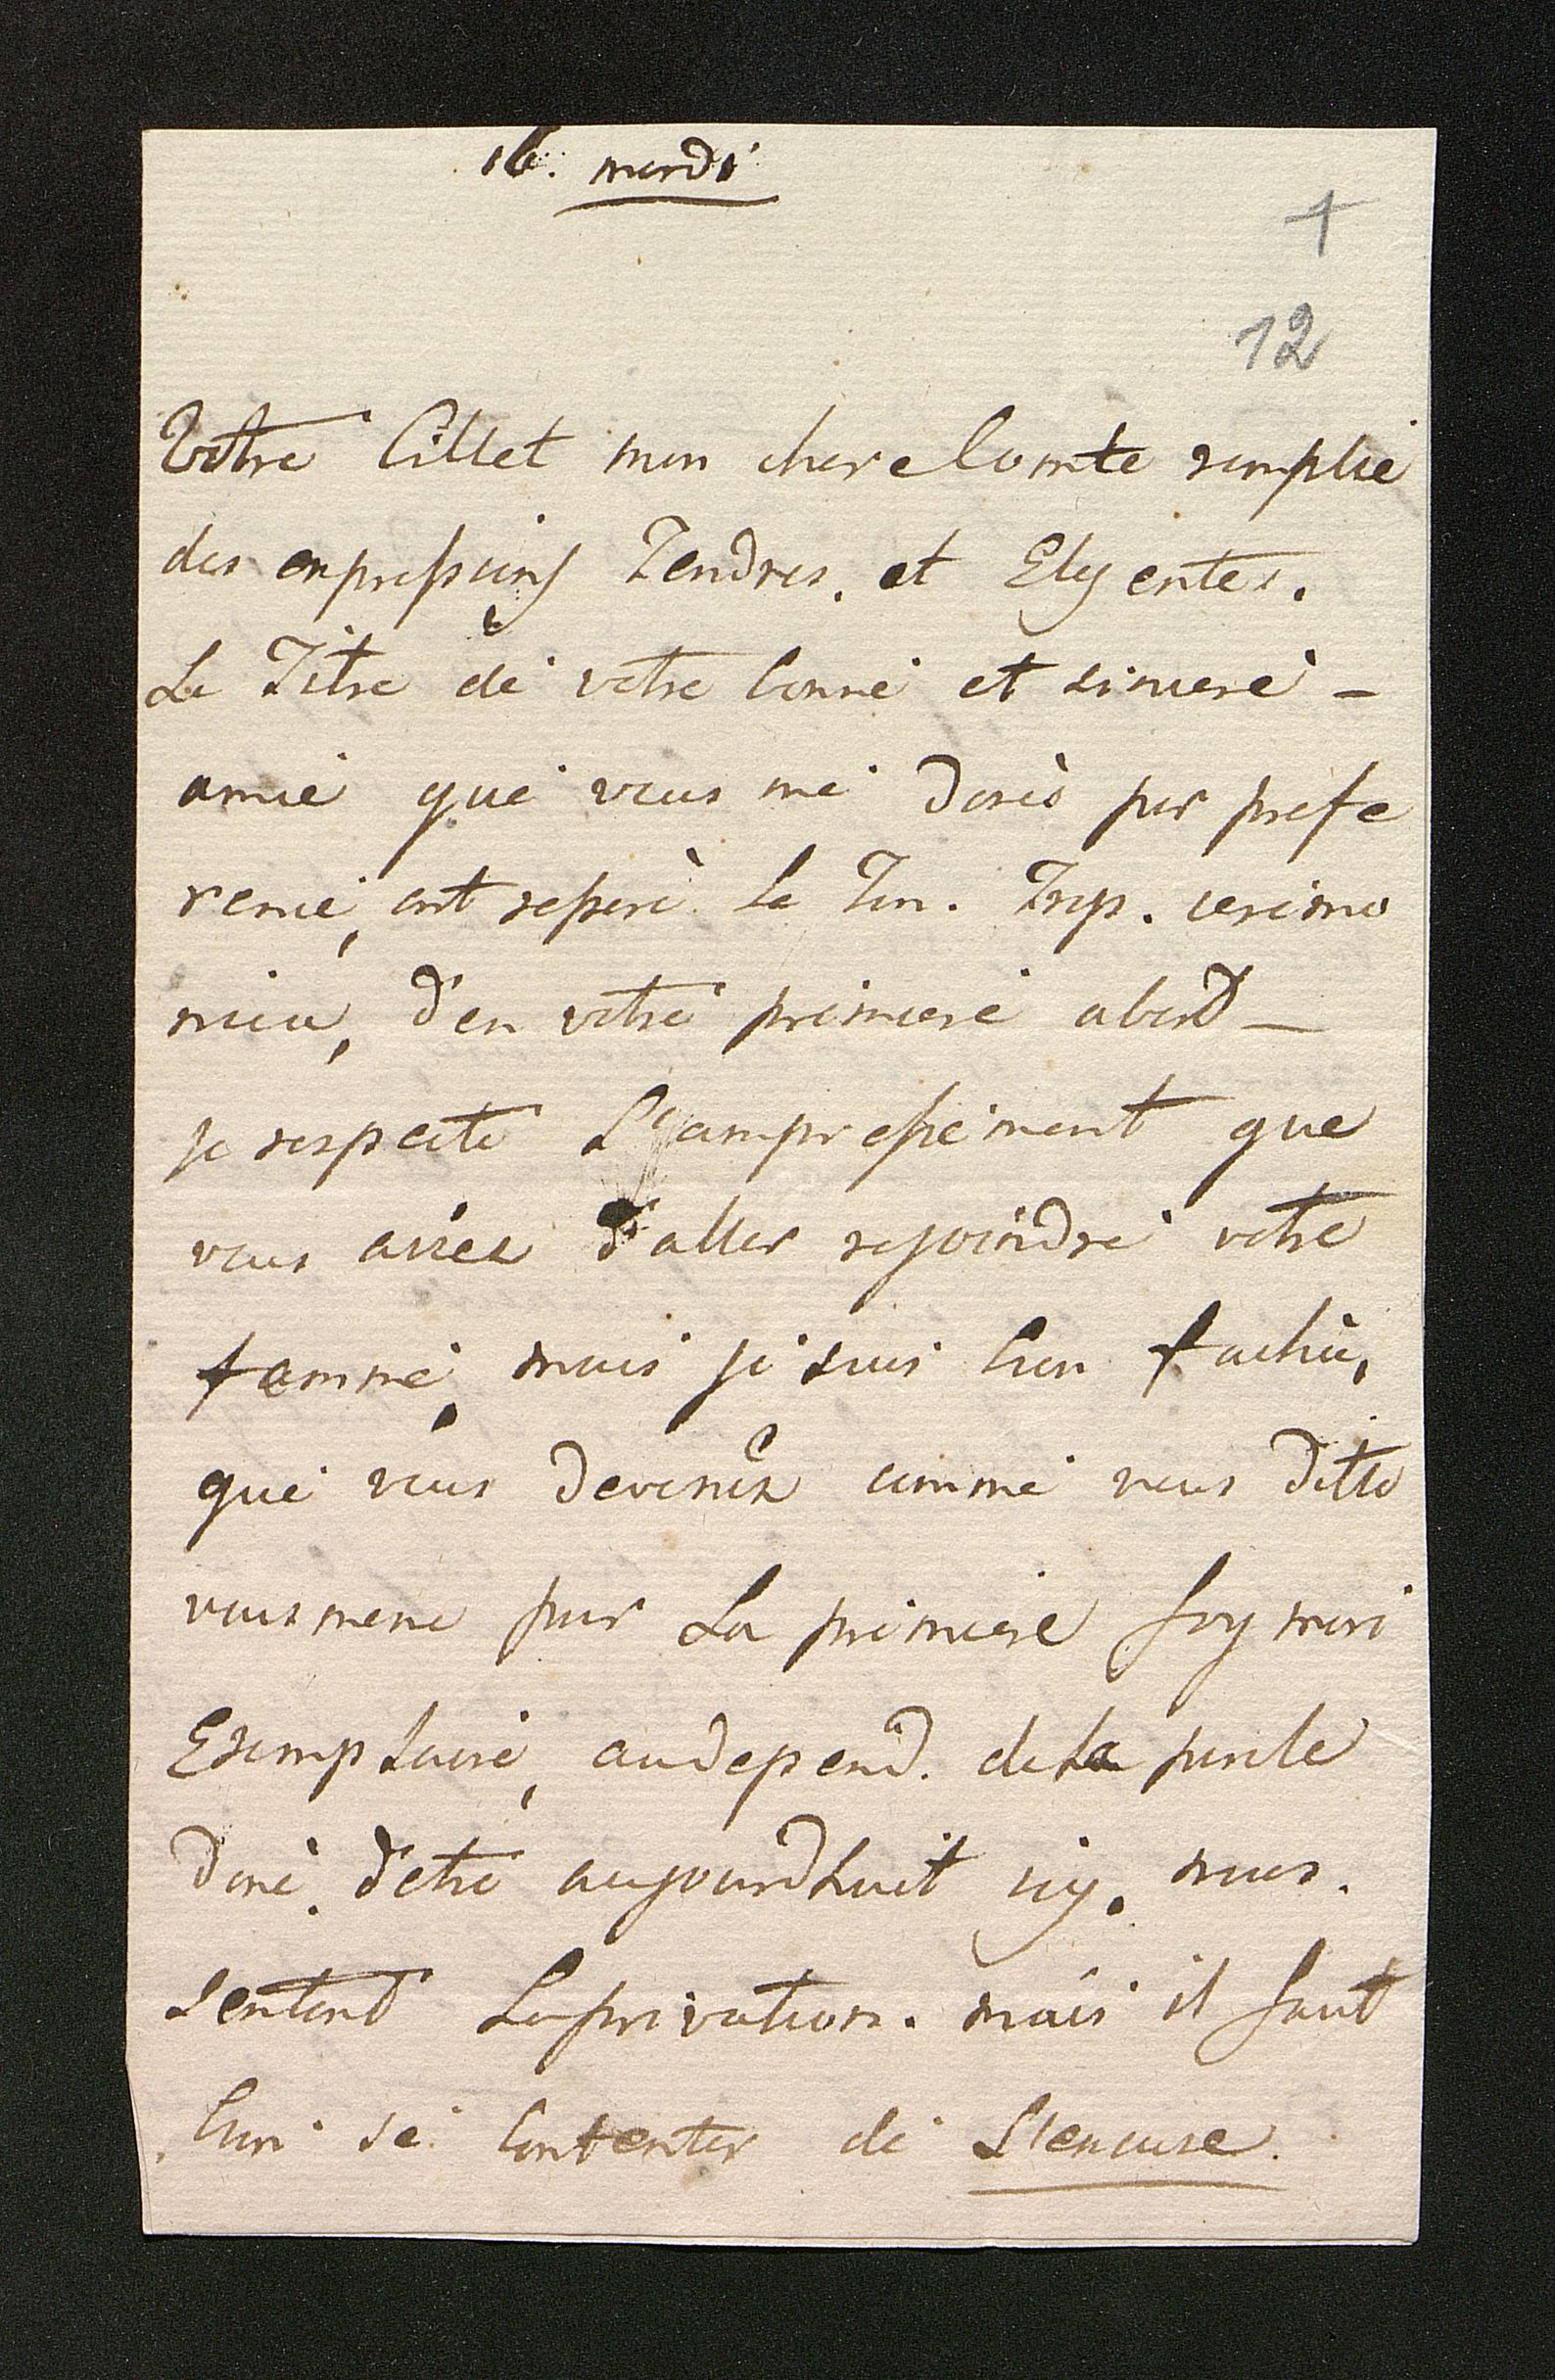 16. mardi
+
12
Votre billet mon chere Comte remplie
des expressions Tendres. et Elegentes.
Le Titre de votre bonne et sincere -
amie que vous me donès par prefe
rence, ont reparè le Ton. Trop. cerimo
nieu, d'en votre primiere abord -
je respecte L'ampressement que
vous avies d'aller rejoindre votre
famme, mais je suis bien fachèe,
que vous devenès comme vous ditte
vous meme pour La primiere foy mari
Exemplaire, audepend. de La parole
donè. d'etre aujourdhuit icy. nous.
sentont La privation. mais il faut
bien se Contenter de L'excuse.